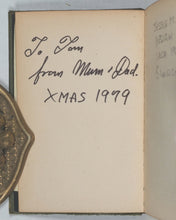 To Tom
from Mum & Dad.
XMAS 1979